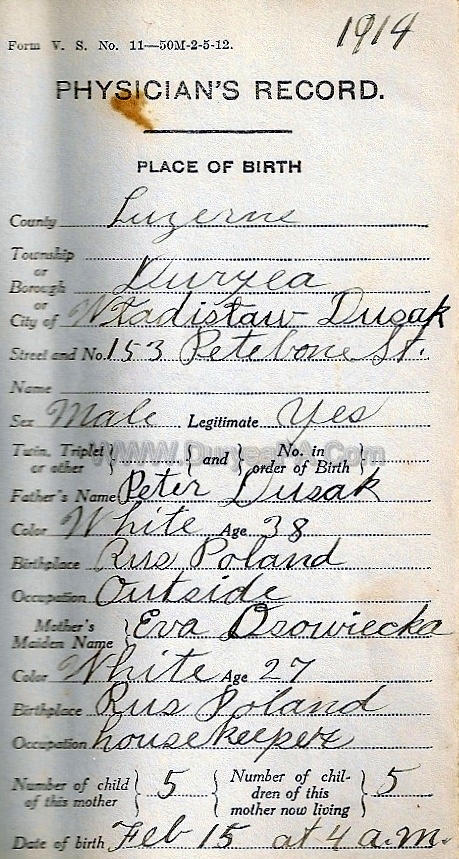 1914
Form V. S. No. 11—50M-2-5-12.
PHYSICIAN'S RECORD.
PLACE OF BIRTH
County Luzerne
Township
or
Borough Duryea
or
City of Wladistaw Dusak
Street and No. 153 Petebone St.
Name
Sex Male Legitimate Yes
Twin, Triplet or other } { and { No. in order of Birth }
WWW.DuryeaPA.Com
Father's Name Peter Dusak
Color White Age 38
Birthplace Rus Poland
Occupation Outside
Mother's Maiden Name } Eva Osowiecka
Color White Age 27
Birthplace Rus Poland
Occupation housekeeper
Number of child of this mother } 5 { Number of chil- dren of this mother now living } 5
Date of birth Feb 15 at 4 a.m.